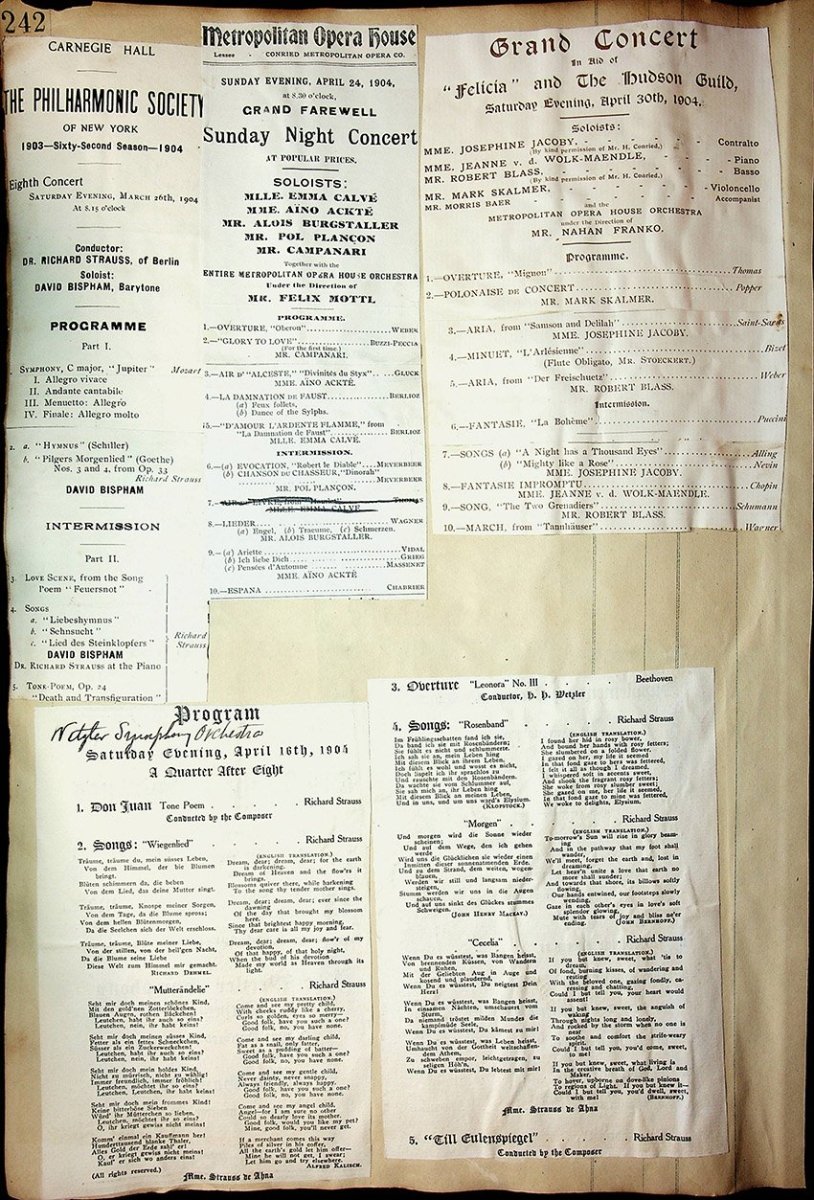 242
CARNEGIE HALL
THE PHILHARMONIC SOCIETY
OF NEW YORK
1903—Sixty-Second Season—1904
Eighth Concert
SATURDAY EVENING, MARCH 26th, 1904
At 8.15 o'clock
Conductor:
DR. RICHARD STRAUSS, of Berlin
Soloist:
DAVID BISPHAM, Barytone
PROGRAMME
Part I.
SYMPHONY, C major, "Jupiter" Mozart
I. Allegro vivace
II. Andante cantabile
III. Menuetto: Allegro
IV. Finale: Allegro molto
2. a. "HYMNUS" (Schiller)
b. "Pilgers Morgenlied" (Goethe)
Nos. 3 and 4, from Op. 33
Richard Strauss
DAVID BISPHAM
INTERMISSION
Part II.
3. LOVE SCENE, from the Song
Poem "Feuersnot"
4. SONGS
a. "Liebeshymnus"
b. "Sehnsucht"
c. "Lied des Steinklopfers"
Richard
Strauss
DAVID BISPHAM
DR. RICHARD STRAUSS at the Piano
5. TONE-POEM, Op. 24
"Death and Transfiguration"
Metropolitan Opera House
Lessee CONRIED METROPOLITAN OPERA CO.
SUNDAY EVENING, APRIL 24, 1904,
at 8.30 o'clock,
GRAND FAREWELL
Sunday Night Concert
AT POPULAR PRICES.
SOLOISTS:
MLLE. EMMA CALVÉ
MME. AÏNO ACKTÉ
MR. ALOIS BURGSTALLER
MR. POL PLANÇON
MR. CAMPANARI
Together with the
ENTIRE METROPOLITAN OPERA HOUSE ORCHESTRA
Under the Direction of
MR. FELIX MOTTL
PROGRAMME.
1.—OVERTURE, "Oberon" WEBER
2.—"GLORY TO LOVE" BUZZI-PECCIA
(For the first time)
MR. CAMPANARI.
3.—AIR D' "ALCESTE," "Divinités du Styx" GLUCK
MME. AÏNO ACKTÉ.
4.—LA DAMNATION DE FAUST BERLIOZ
(a) Feux follets,
(b) Dance of the Sylphs.
5.—"D'AMOUR L'ARDENTE FLAMME," from
"La Damnation de Faust" BERLIOZ
MLLE. EMMA CALVÉ.
INTERMISSION.
6.—(a) EVOCATION, "Robert le Diable" MEYERBEER
(b) CHANSON DE CHASSEUR, "Dinorah"
MEYERBEER
MR. POL PLANÇON.
7.— THOMAS
MLLE. EMMA CALVÉ
8.—LIEDER WAGNER
(a) Engel, (b) Traeume, (c) Schmerzen.
MR. ALOIS BURGSTALLER.
9.—(a) Ariette VIDAL
(b) Ich liebe Dich GRIEG
(c) Pensées d'Automne MASSENET
MME. AÏNO ACKTÉ
10.—ESPANA CHABRIER
Grand Concert
In Aid of
"Felicia" and The Hudson Guild,
Saturday Evening, April 30th, 1904,
Soloists:
MME. JOSEPHINE JACOBY, Contralto
(By kind permission of Mr. H. Conried.)
MME. JEANNE v. d. WOLK-MAENDLE, Piano
MR. ROBERT BLASS, Basso
(By kind permission of Mr. H. Conried.)
MR. MARK SKALMER, Violoncello
MR. MORRIS BAER Accompanist
and the
METROPOLITAN OPERA HOUSE ORCHESTRA
under the Direction of
MR. NAHAN FRANKO.
Programme.
1.—OVERTURE, "Mignon" Thomas
2.—POLONAISE DE CONCERT Popper
MR. MARK SKALMER.
3.—ARIA, from "Samson and Delilah" Saint-Saëns
MME. JOSEPHINE JACOBY.
4.—MINUET, "L'Arlésienne" Bizet
(Flute Obligato, MR. STOECKERT.)
5.—ARIA, from "Der Freischuetz" Weber
MR. ROBERT BLASS.
Intermission.
6.—FANTASIE, "La Bohème" Puccini
7.—SONGS (a) "A Night has a Thousand Eyes" Alling
(b) "Mighty like a Rose" Nevin
MME. JOSEPHINE JACOBY.
8.—FANTASIE IMPROMPTU Chopin
MME. JEANNE v. d. WOLK-MAENDLE.
9.—SONG, "The Two Grenadiers" Schumann
MR. ROBERT BLASS.
10.—MARCH, from "Tannhäuser" Wagner
Program
Wetzler Symphony Orchestra
Saturday Evening, April 16th, 1904
A Quarter After Eight
1. Don Juan Tone Poem Richard Strauss
Conducted by the Composer
2. Songs: "Wiegenlied" Richard Strauss
Träume, träume du, mein süsses Leben,
Von dem Himmel, der die Blumen
bringt.
Blüten schimmern da, die beben
Von dem Lied, das deine Mutter singt.
Träume, träume, Knospe meiner Sorgen,
Von dem Tage, da die Blume spross;
Von dem hellen Blütenmorgen,
Da die Seelchen sich der Welt erschloss.
Träume, träume, Blüte meiner Liebe,
Von der stillen, von der heil'gen Nacht,
Da die Blume seine Liebe
Diese Welt zum Himmel mir gemacht.
RICHARD DEHMEL.
(ENGLISH TRANSLATION.)
Dream, dear; dream, dear; for the earth
is darkening.
Dream of Heaven and the flow'rs it
brings.
Blossoms quiver there, while harkening
to the song thy tender mother sings.
Dream, dear; dream, dear; ever since the
dawning
Of the day that brought my blossom
here.
Since that brightest happy morning,
Thy dear care is all my joy and fear.
Dream, dear; dream, dear; flow'r of my
devotion,
Of that happy, of that holy night,
When the bud of his devotion
Made my world as Heaven through its
light.
"Mutterändelie" Richard Strauss
Seht mir doch meinen schönes Kind,
Mit den gold'nen Zotterlöckchen,
Blauen Augen, rothen Bäckchen!
Leutchen, habt ihr auch so eins?
Leutchen, nein, ihr habt keins!
Seht mir doch meinen süsses Kind,
Fetter als ein fettes Schneckchen,
Süsser als ein Zuckerweckchen!
Leutchen, habt ihr auch so eins?
Leutchen, nein, ihr habt keins!
Seht mir doch mein holdes Kind,
Nicht zu mürrisch, nicht zu wählig!
Immer freundlich, immer fröhlich!
Leutchen, möchtet ihr so eins?
Leutchen, Leutchen, ihr habt keins!
Seht mir doch mein frommes Kind!
Keine bitterböse Sieben
Würd' ihr Mütterchen so lieben.
Leutchen, möchtet ihr so eins?
O, ihr kriegt gewiss nicht meins!
Komm' einmal ein Kaufmann her!
Hunderttausend blanke Thaler,
Alles Gold der Erde zahl' er!
O, er kriegt gewiss nicht meins!
Kauf' er sich wo anders eins!
(All rights reserved.)
(ENGLISH TRANSLATION.)
Come and see my pretty child,
With cheeks ruddy like a cherry,
Curls so golden, eyes so merry—
Good folk, have you such a one?
Good folk, no, you have none.
Come and see my darling child,
Fat as a snail, only fatter,
Sweet as a pudding of batter—
Good folk, have you such a one?
Good folk, no, you have none.
Come and see my gentle child,
Never dainty, never snappy,
Always friendly, always happy.
Good folk, have you such a one?
Good folk, no, you have none.
Come and see my angel child.
Angel—for I am sure no other
Could so dearly love its mother.
Good folk, would you like my pet?
Mine, good folk, you'll never get.
If a merchant comes this way
Piles of silver in his coffer,
All the earth's gold let him offer—
Mine he will not get, I swear;
Let him go and try elsewhere.
ALFRED KALISCH.
Mme. Strauss de Ahna
3. Overture "Leonora" No. III Beethoven
Conductor, H. H. Wetzler
4. Songs: "Rosenband" Richard Strauss
Im Frühlingsschatten fand ich sie,
Da band ich sie mit Rosenbändern;
Sie fühlt es nicht und schlummert.
Ich sah sie an, mein Leben hing
Mit diesem Blick an ihrem Leben.
Ich fühlt es wohl und wusst es nicht,
Doch lispelt ich ihr sprachlos zu
Und rauschte mit den Rosenbändern.
Da wachte sie vom Schlummer auf,
Sie sah mich an, ihr Leben hing
Mit diesem Blick an meinem Leben,
Und in uns, und um uns ward's Elysium.
(KLOPSTOCK.)
(ENGLISH TRANSLATION.)
I found her hid in rosy bower,
And bound her hands with rosy fetters;
She slumbered on a folded flower.
I gazed on her, my life it seemed
In that fond gaze to hers was fettered,
I felt it all as though I dreamed,
I whispered soft in accents sweet,
And shook the fragrant rosy fetters;
She woke from rosy slumber sweet;
She gazed on me, her life it seemed,
In that fond gaze to mine was fettered,
We woke to delights, Elysium.
"Morgen" Richard Strauss
Und morgen wird die Sonne wieder
scheinen;
Und auf dem Wege, den ich gehen
werde
Wird uns die Glücklichen sie wieder einen
Inmitten dieser sonnenatmenden Erde.
Und zu dem Strand, dem weiten, wogen-
blauen,
Werden wir still und langsam nieder-
steigen,
Stumm werden wir uns in die Augen
schauen,
Und auf uns sinkt des Glückes stummes
Schweigen.
(JOHN HENRY MACKAY.)
(ENGLISH TRANSLATION.)
To-morrow's Sun will rise in glory beam-
ing
And in the pathway that my foot shall
wander,
We'll meet, forget the earth and, lost in
dreaming,
Let heav'n unite a love that earth no
more shall sunder;
And towards that shore, its billows softly
flowing,
Our hands entwined, our footsteps slowly
wending,
Gaze in each other's eyes in love's soft
splendor glowing,
Mute with tears of joy and bliss ne'er
ending. (JOHN BERNHOFF.)
"Cecelia" Richard Strauss
Wenn Du es wüsstest, was Bangen heisst,
Von brennenden Küssen, von Wandern
und Ruhen,
Mit der Geliebten Aug in Auge und
kosend und plaudernd,
Wenn Du es wüsstest, Du neigtest Dein
Herz!
Wenn Du es wüsstest, was Bangen heisst,
In einsamen Nächten, umschauert vom
Sturm,
Da niemand tröstet milden Mundes die
kampfmüde Seele,
Wenn Du es wüsstest, Du kämest zu mir!
Wenn Du es wüsstest, was Leben heisst,
Umhaucht von der Gottheit weltschaffen-
dem Athem,
Zu schweben empor, leichtgetragen, zu
seligen Höh'n,
Wenn Du es wüsstest, Du lebtest mit mir!
(ENGLISH TRANSLATION.)
If you but knew, sweet, what 'tis to
dream,
Of fond, burning kisses, of wandering and
resting
With the beloved one, gazing fondly, ca-
ressing and chatting,
Could I but tell you, your heart would
assent!
If you but knew, sweet, the anguish of
waking
Through nights long and lonely,
And rocked by the storm when no one is
near
To soothe and comfort the strife-weary
spirit,
Could I but tell you, you'd come, sweet,
to me!
If you but knew, sweet, what living is
In the creative breath of God, Lord and
Maker,
To hover, upborne on dove-like pinions
To regions of Light. If you but knew it—
Could I but tell you, you'd dwell, sweet,
with me! (BERNHOFF.)
Mme. Strauss de Ahna
5. "Till Eulenspiegel" Richard Strauss
Conducted by the Composer